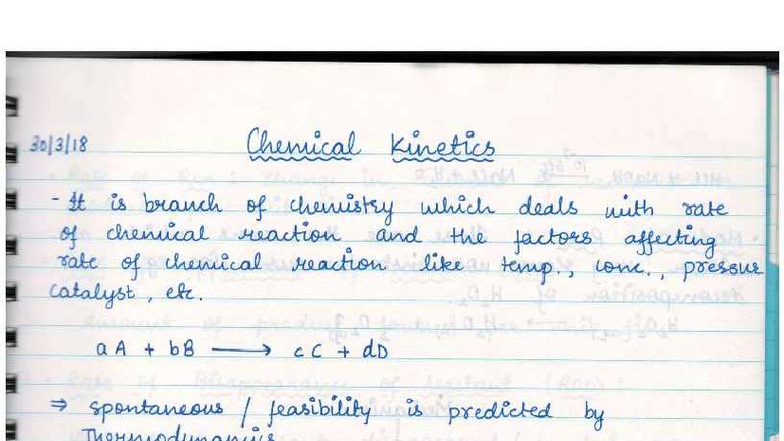 30/3/18
Chemical Kinetics
- It is branch of chemistry which deals with rate
of chemical reaction and the factors affecting
rate of chemical reaction like temp., conc., pressure
catalyst, etc.
aA + bB ⟶ cC + dD
⇒ spontaneous / feasibility is predicted by
Thermodynamics